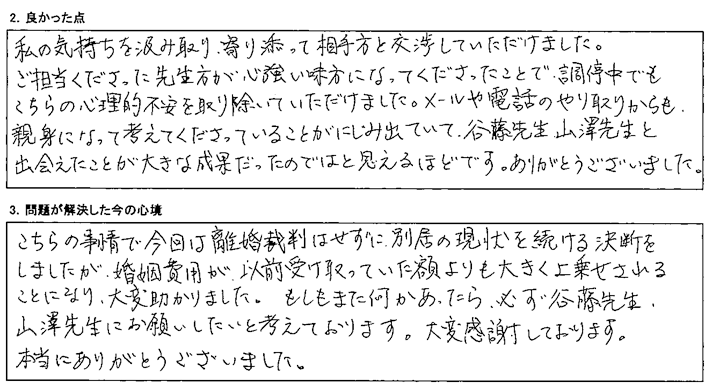 2. 良かった点
私の気持ちを汲み取り、寄り添って相手方と交渉していただけました。
ご担当くださった先生方が心強い味方になってくださったことで、調停中でも
こちらの心理的不安を取り除いていただけました。メールや電話のやり取りからも、
親身になって考えてくださっていることがにじみ出ていて、谷藤先生、山澤先生と
出会えたことが大きな成果だったのではと思えるほどです。ありがとうございました。
3. 問題が解決した今の心境
こちらの事情で今回は離婚裁判はせずに、別居の現状を続ける決断を
しましたが、婚姻費用が、以前受け取っていた額よりも大きく上乗せされる
ことになり、大変助かりました。もしもまた何かあったら、必ず谷藤先生、
山澤先生にお願いしたいと考えております。大変感謝しております。
本当にありがとうございました。